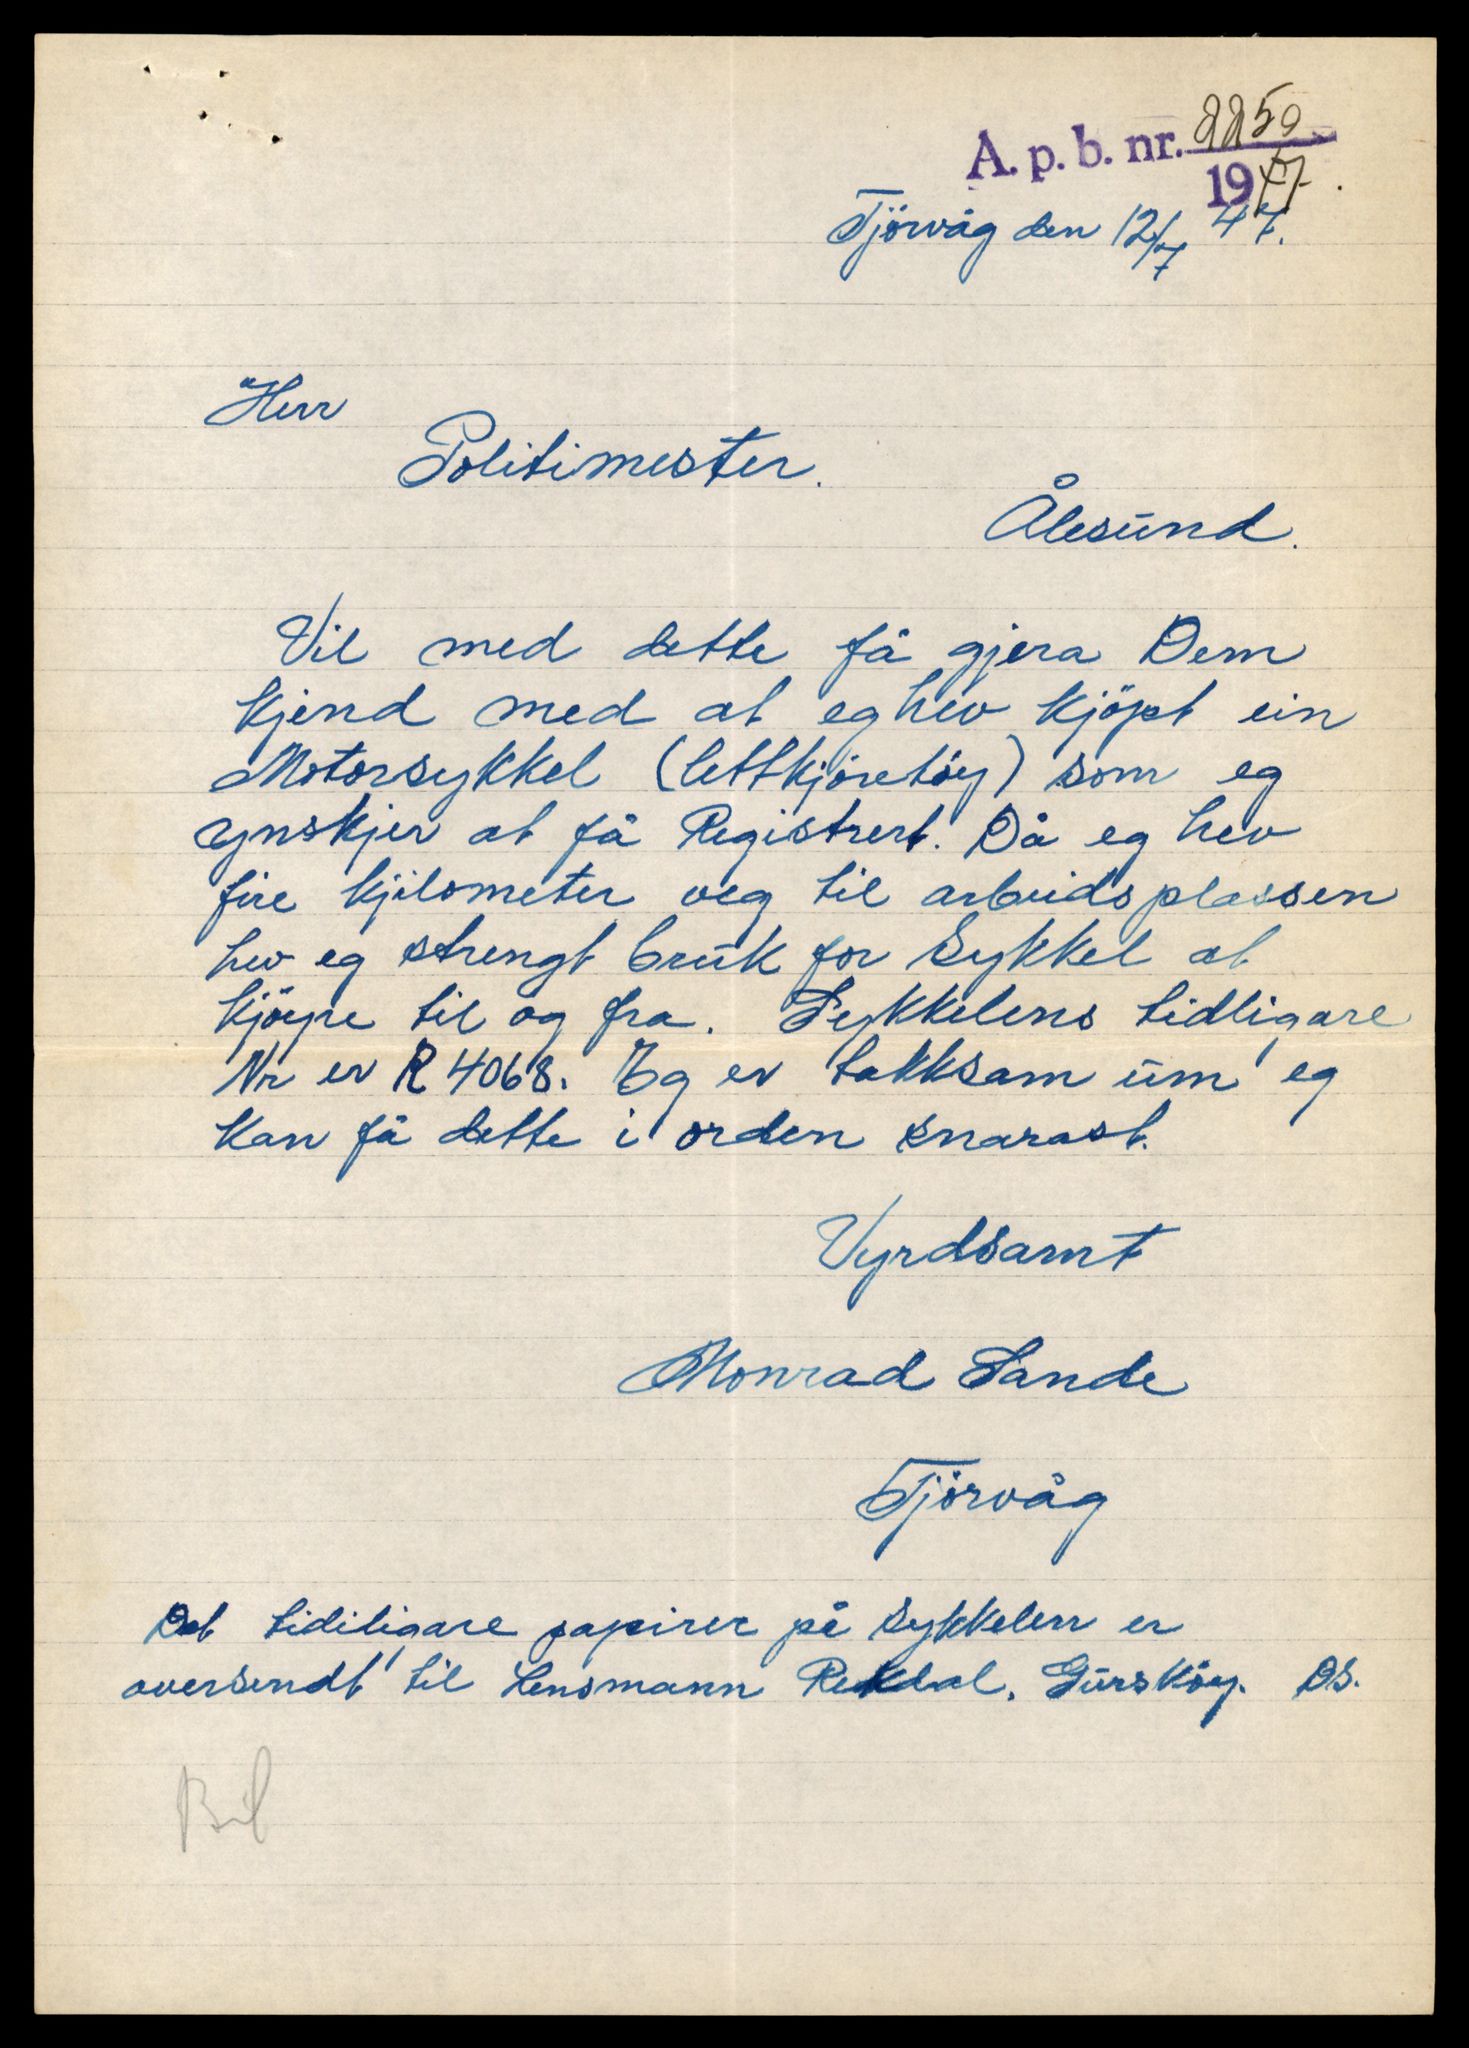 A. p. b. nr. 2250
1947.
Tjörvåg den 12/7 47.
Herr
Politimester.
Ålesund.
Vil med dette få gjera Dem
kjend med at eg hev kjöpt ein
Motorsykkel (lettkjöretöy) som eg
ynskjer at få Registrert. Då eg hev
fire kjilometer veg til arbeidsplassen
hev eg strengt bruk for Sykkel at
kjöyre til og fra. Sykkelens tidligare
Nr er R 4068. Eg er takksam um eg
kan få dette i orden snarast.
Vyrdsamt
Monrad Sande
Tjörvåg
Det tidiligare papirer på Sykkelen er
oversendt til Lensmann Rekdal. Gursköy. DS.
Bil